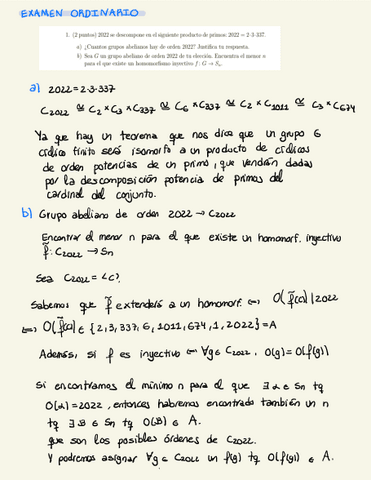 EXAMEN ORDINARIO
1. (2 puntos) 2022 se descompone en el siguiente producto de primos: 2022 = 2·3·337.
a) ¿Cuantos grupos abelianos hay de orden 2022? Justifica tu respuesta.
b) Sea G un grupo abeliano de orden 2022 de tu elección. Encuentra el menor n
para el que existe un homomorfismo inyectivo f : G → Sₙ.
a) 2022 = 2·3·337
C2022 ≅ C2 × C3 × C337 ≅ C6 × C337 ≅ C2 × C1011 ≅ C3 × C674
Ya que hay un teorema que nos dice que un grupo G
cíclico finito será isomorfo a un producto de cíclicos
de orden potencias de un primo, que vendrán dadas
por la descomposición potencia de primos del
cardinal del conjunto.
b) Grupo abeliano de orden 2022 → C2022
Encontrar el menor n para el que existe un homomorf. inyectivo
f̃: C2022 → Sn
Sea C2022 = <C>.
Sabemos que f̃ extenderá a un homomorf. ⟺ O(f̃(a))|2022
⟺ O(f̃(a)) ∈ {2, 3, 337, 6, 1011, 674, 1, 2022} = A
Además, si f es inyectivo ⟺ ∀g ∈ C2022, O(g) = O(f(g))
Si encontramos el mínimo n para el que ∃ α ∈ Sn tq
O(α) = 2022, entonces habremos encontrado también un n
tq ∃ B ∈ Sn tq O(B) ∈ A.
que son los posibles órdenes de C2022.
Y podremos asignar ∀g ∈ C2022 un f(g) tq O(f(g)) ∈ A.